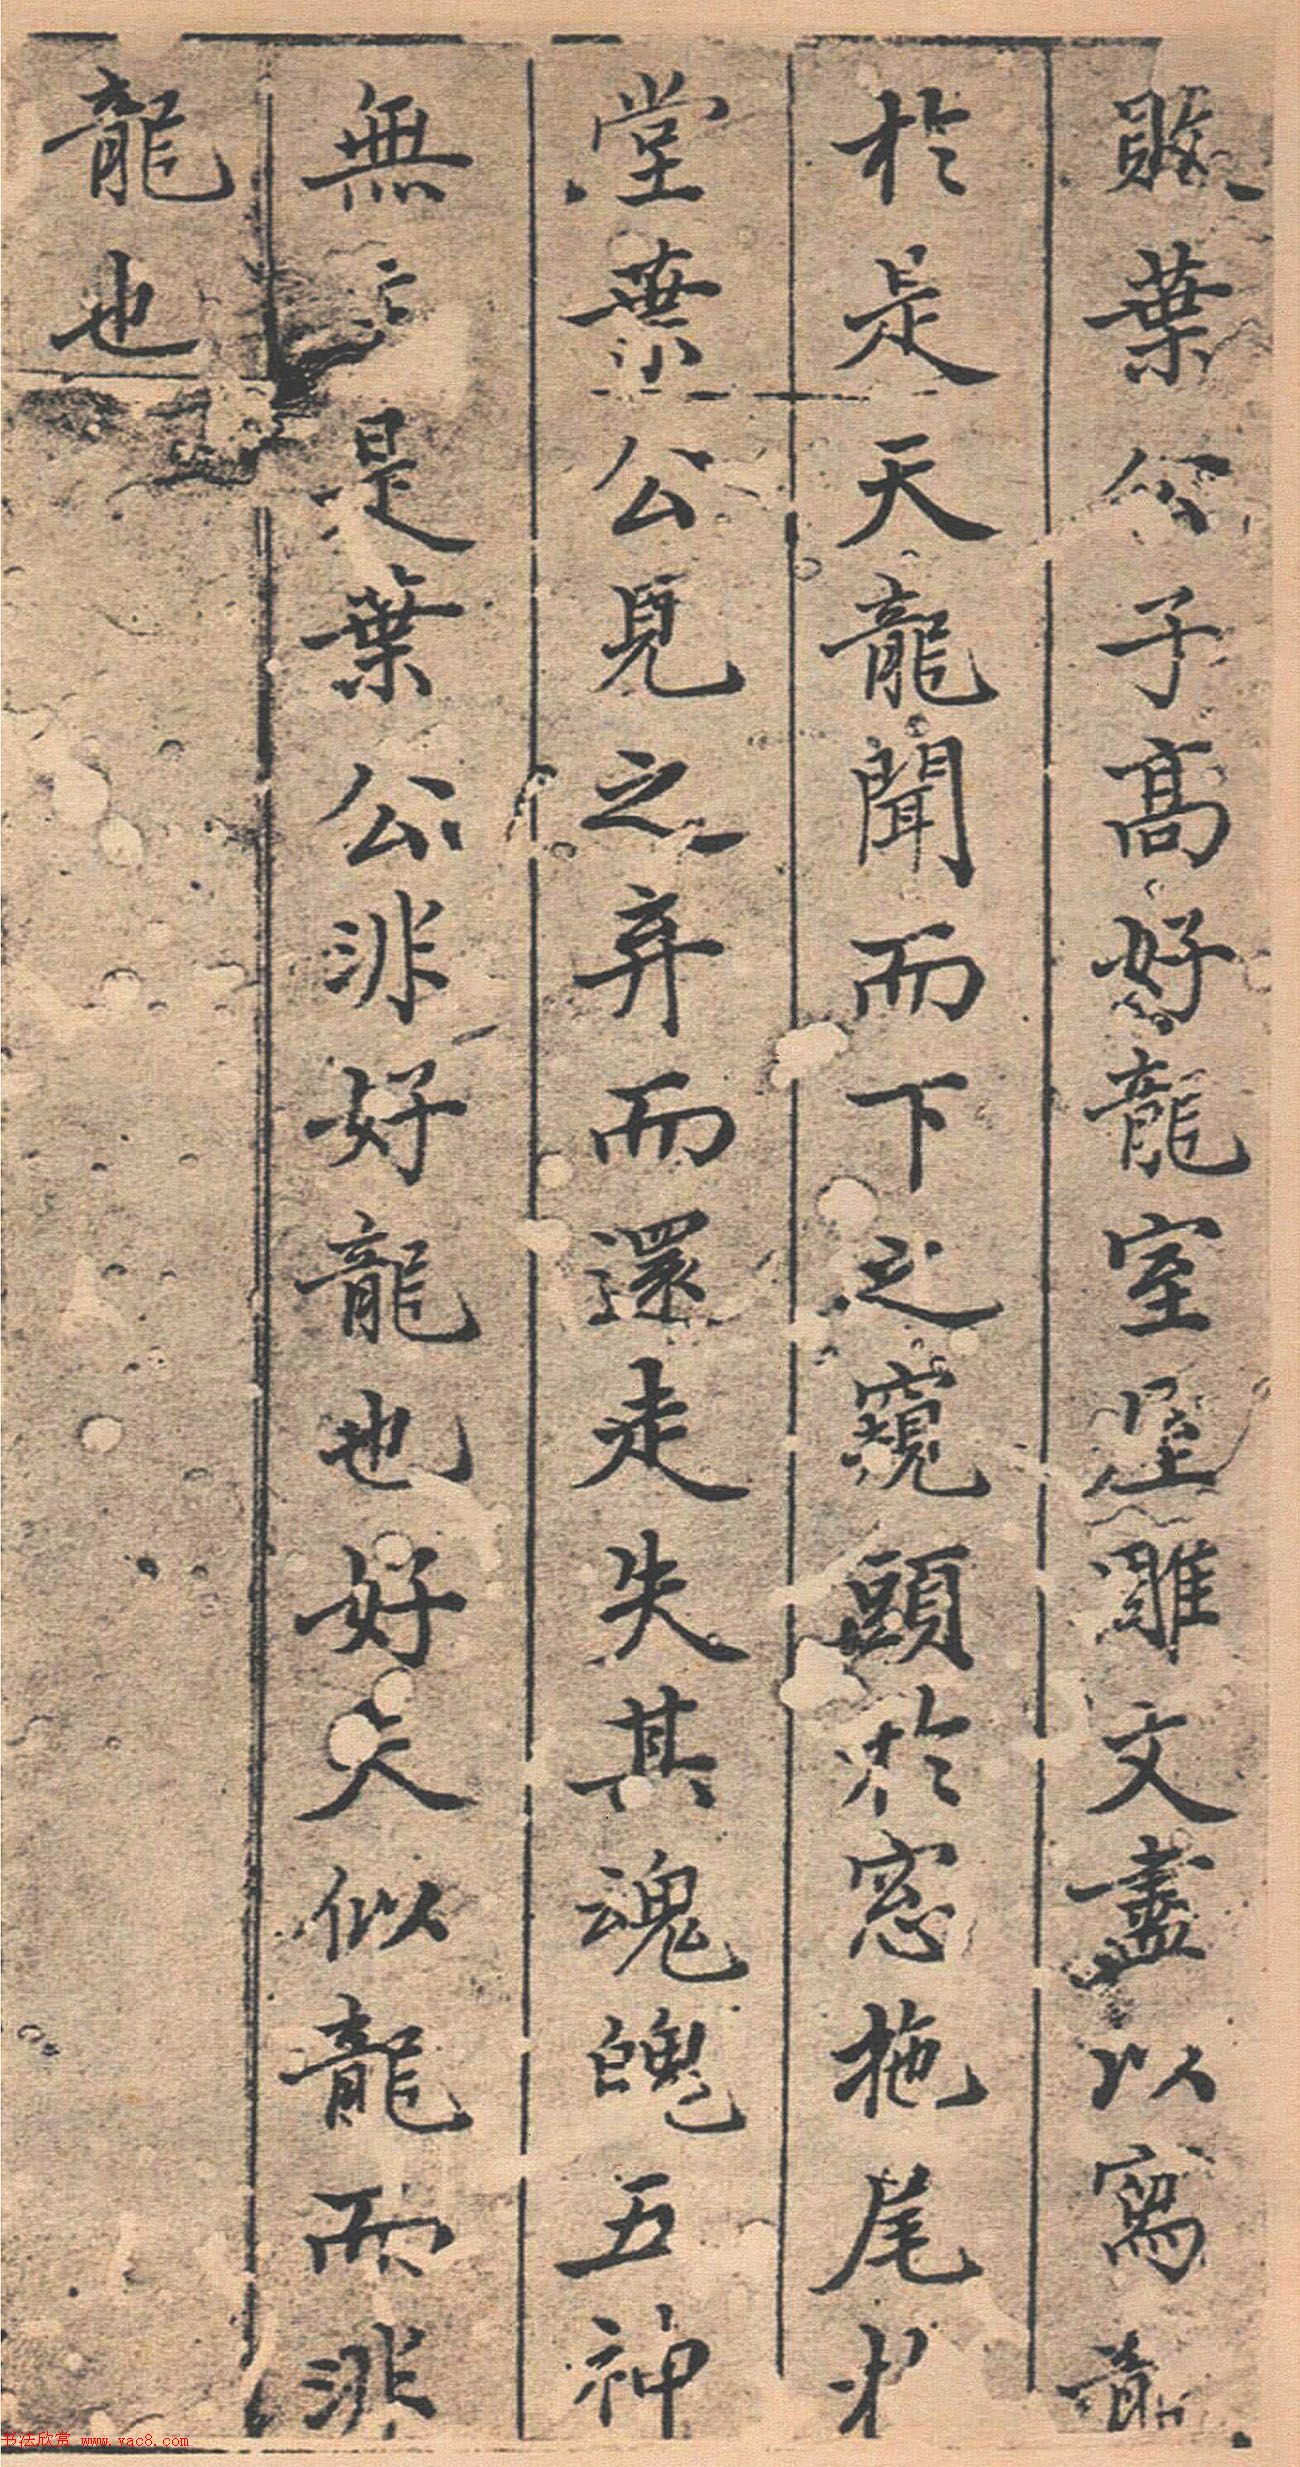 敗葉公子高好龍室屋雕文盡以寫龍
於是天龍聞而下之窺頭於窓拖尾於
堂葉公見之弃而還走失其魂魄五神
無主是葉公非好龍也好夫似龍而非
龍也
书法欣赏 www.yac8.com